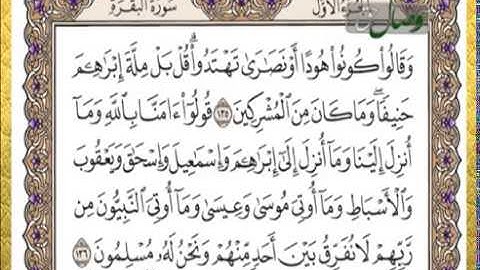 سُورَةُ البَقَرَةِ
الأَوَّل
وصال
وَقَالُوا۟ كُونُوا۟ هُودًا أَوْ نَصَٰرَىٰ تَهْتَدُوا۟ ۗ قُلْ بَلْ مِلَّةَ إِبْرَٰهِـۧمَ
حَنِيفًا ۖ وَمَا كَانَ مِنَ ٱلْمُشْرِكِينَ ١٣٥ قُولُوٓا۟ ءَامَنَّا بِٱللَّهِ وَمَآ
أُنزِلَ إِلَيْنَا وَمَآ أُنزِلَ إِلَىٰٓ إِبْرَٰهِـۧمَ وَإِسْمَٰعِيلَ وَإِسْحَٰقَ وَيَعْقُوبَ
وَٱلْأَسْبَاطِ وَمَآ أُوتِىَ مُوسَىٰ وَعِيسَىٰ وَمَآ أُوتِىَ ٱلنَّبِيُّونَ مِن
رَّبِّهِمْ لَا نُفَرِّقُ بَيْنَ أَحَدٍ مِّنْهُمْ وَنَحْنُ لَهُۥ مُسْلِمُونَ ١٣٦